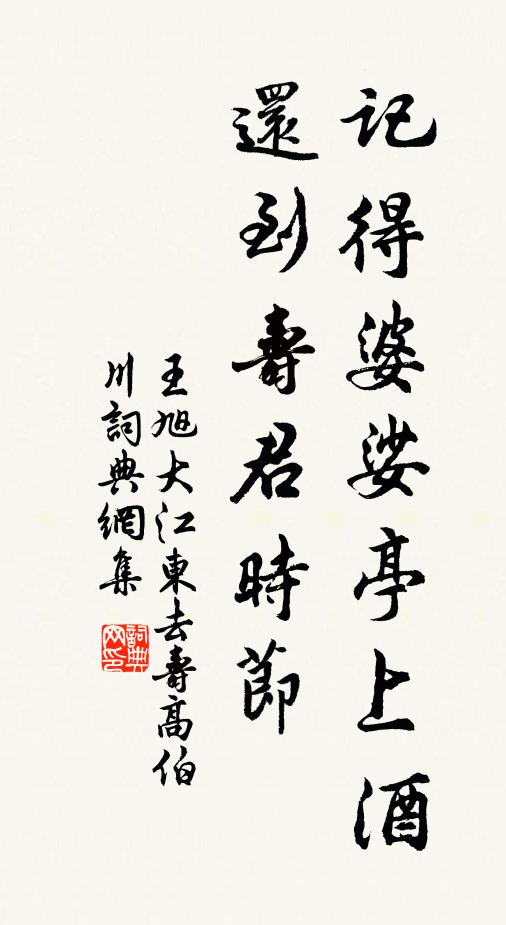 記得婆娑亭上酒
還到壽君時節
王旭大江東去壽高伯
川詞典網集
詞典
网印